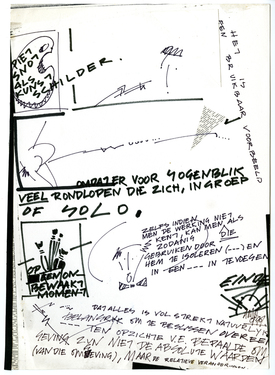 PIET
SNOT
ALS
KUNST
SCHILDER.
HET IS
EEN BRUIKBAAR VOORBEELD
OMDAT ER VOOR 1 OGENBLIK
VEEL RONDLOPEN DIE ZICH, IN GROEP
OF SOLO.
ZELFS INDIEN
MEN DE WERKING NIET
KENT, KAN MEN ALS
ZODANIG DIE
GEBRUIKEN DOOR
HEM TE ISOLEREN (---) EN
IN -EEN --- IN TE VOEGEN
OP
EEN ON-
BEWAAKT
MOMENT.
EINDE
DAT ALLES IS VOLSTREKT NATUURLIJK
BELANGRIJK OM TE BESLISSEN
TEN OPZICHTE V.E. BEPAALDE OM-
GEVING ZIJN NIET DE ABSOLUTE WAARDEN
(VAN DIE OMGEVING), MAAR DE RELATIEVE VERANDERINGEN